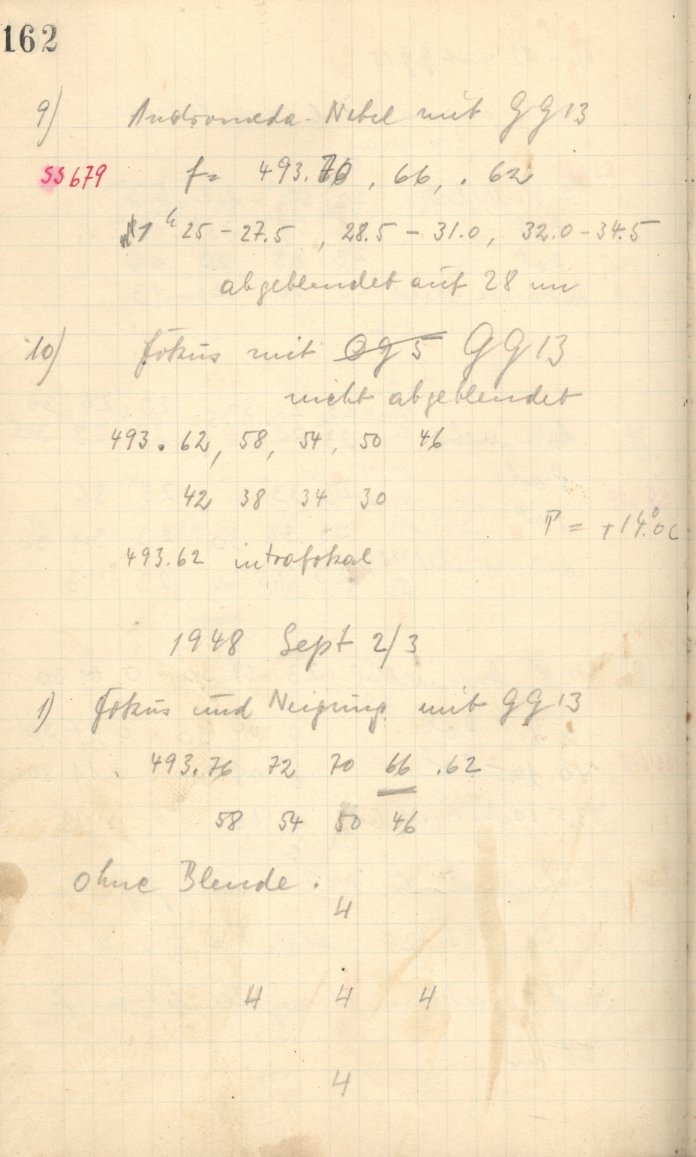 162
9) Andromeda-Nebel mit GG13
SS679 f= 493.70, 66, .62
1h 25-27.5, 28.5-31.0, 32.0-34.5
abgeblendet auf 28 cm
10) Fokus mit OG5 GG13
nicht abgeblendet
493.62, 58, 54, 50 46
42 38 34 30
T = +14.°0C
493.62 intrafokal
1948 Sept 2/3
1) Fokus und Neigung mit GG13
493.76 72 70 66 .62
58 54 50 46
Ohne Blende.
4
4 4 4
4